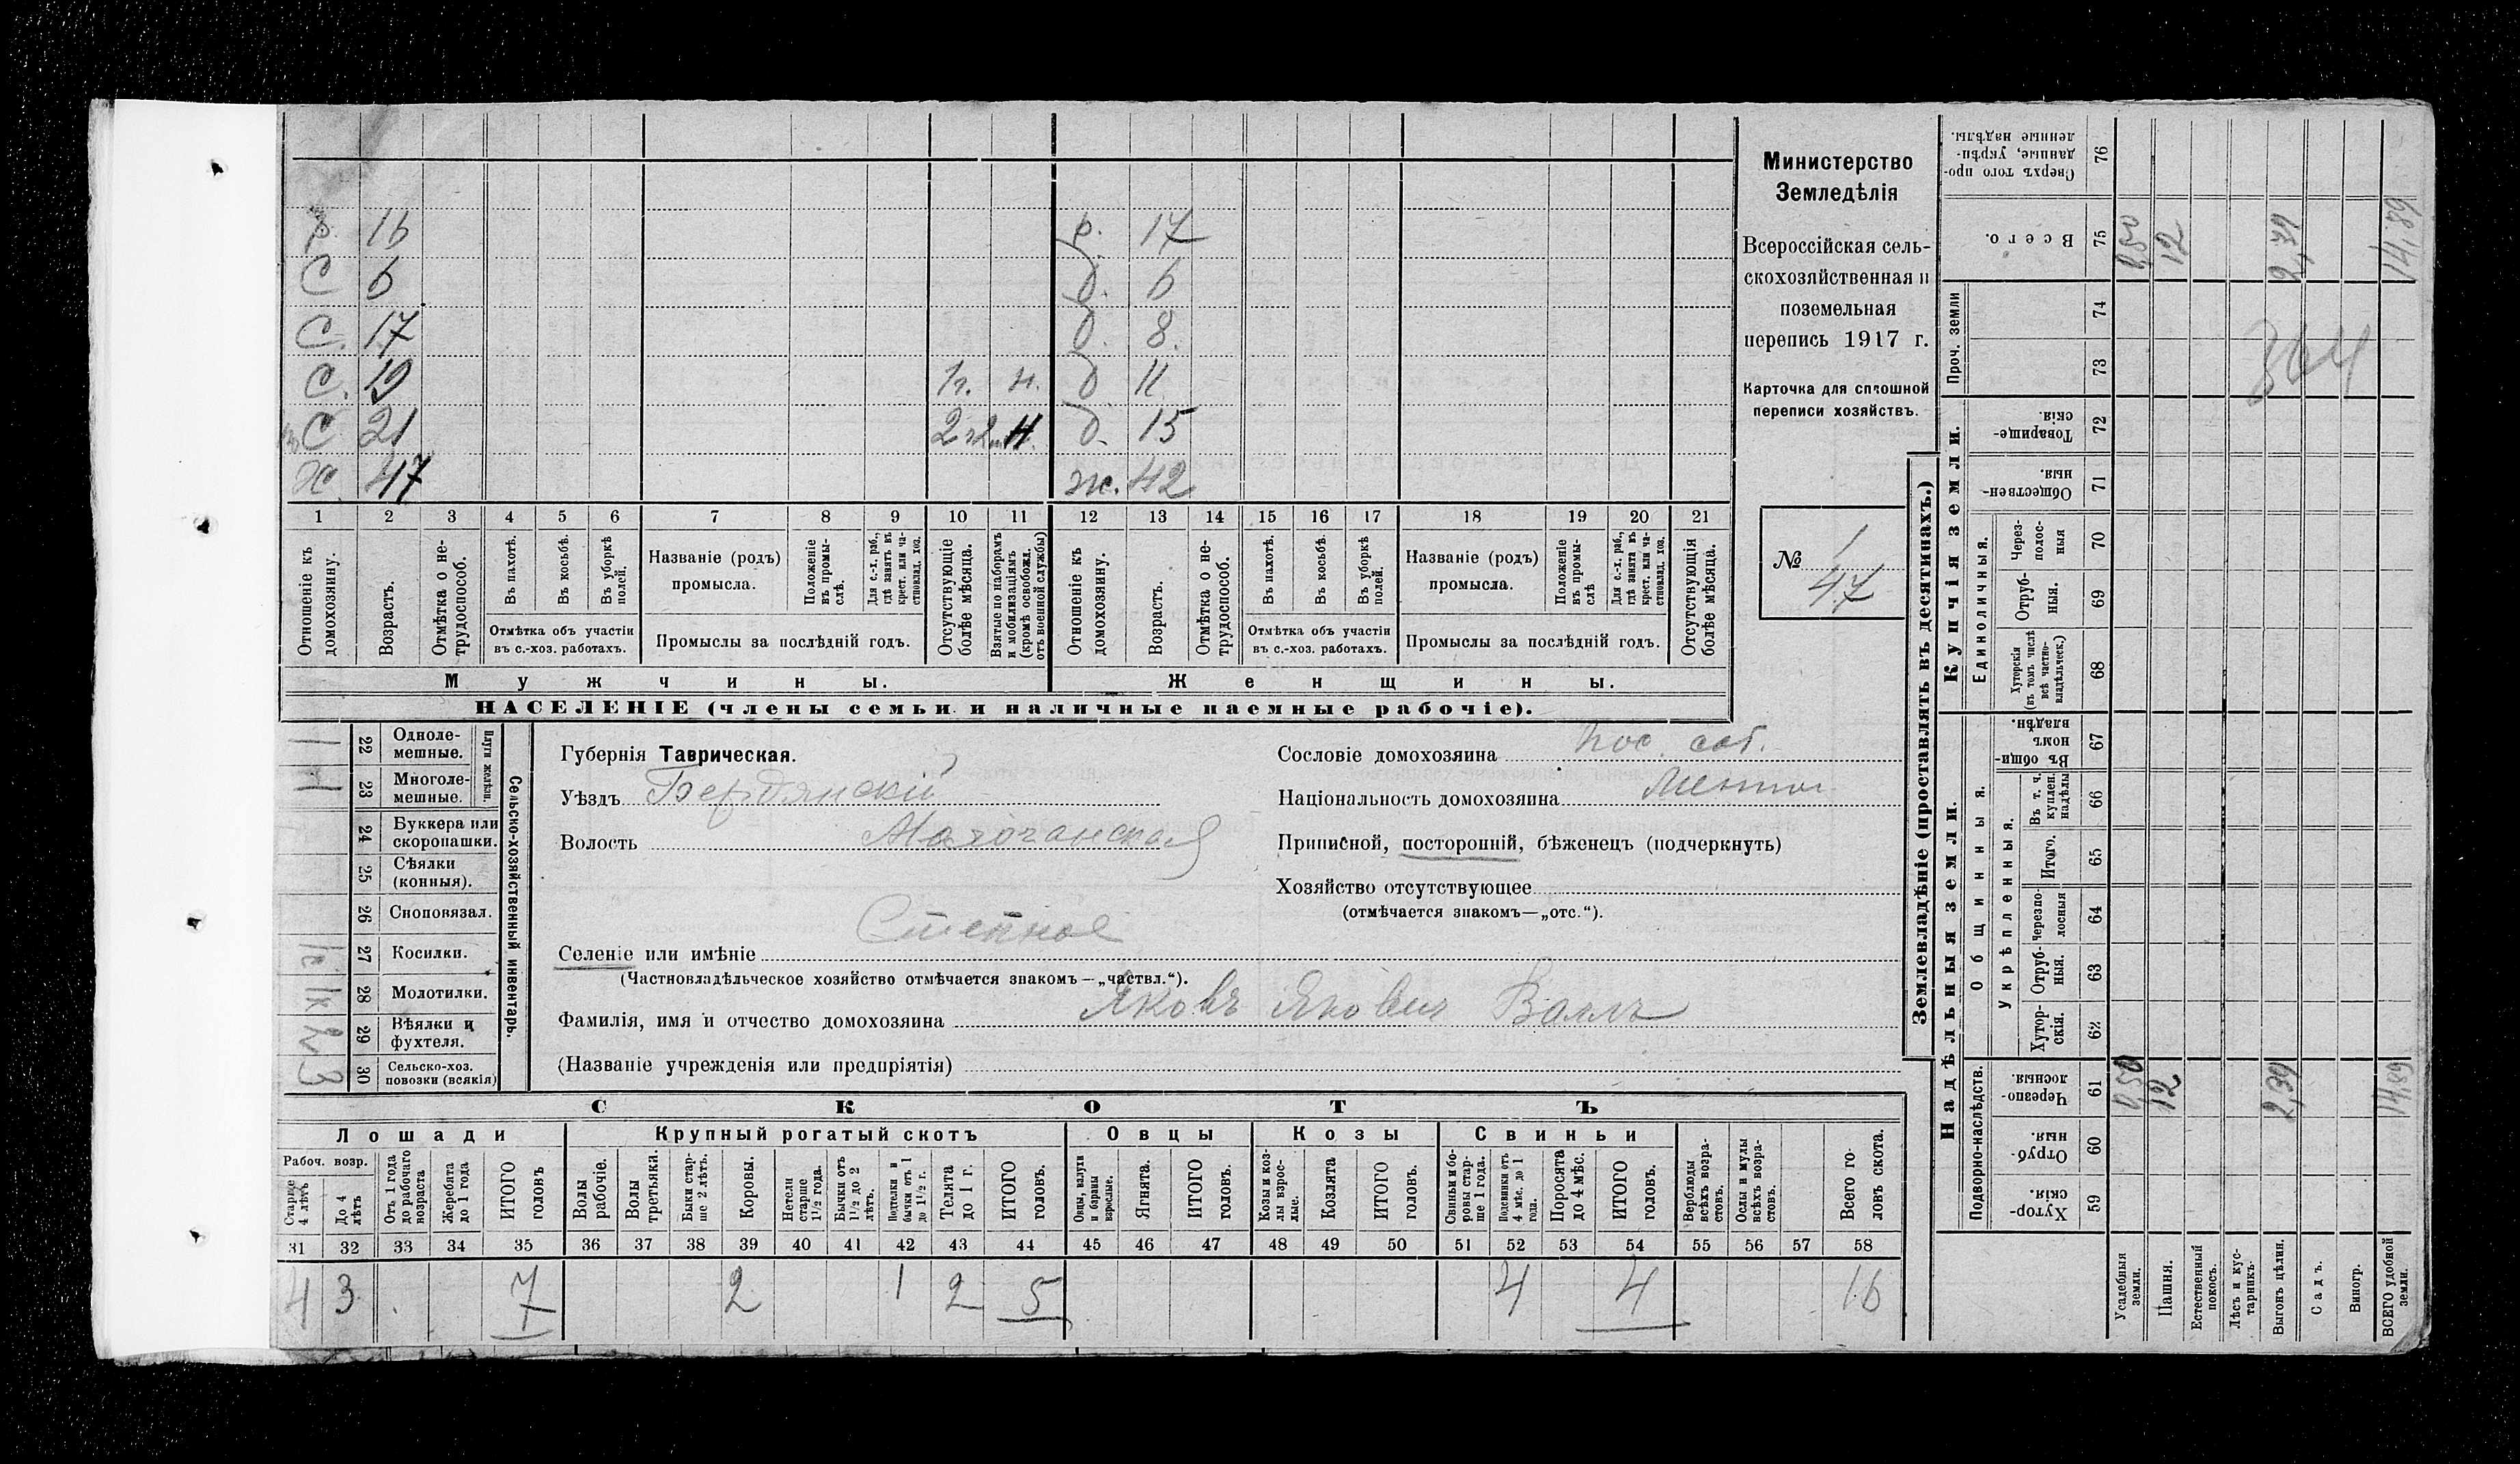 р. 16 р. 17
С 6 д. 6
С. 17 д. 8.
С. 19 1 г. н. д 11
С 21 2 г 2 м н. д. 15
х. 47 ж. 42
1 2 3 4 5 6 7 8 9 10 11 12 13 14 15 16 17 18 19 20 21
Отношеніе къ домохозяину.
Возрастъ.
Отмѣтка о не-трудоспособ.
Въ пахотѣ.
Въ косьбѣ.
Въ уборкѣ полей.
Отмѣтка объ участіи
въ с.-хоз. работахъ.
Названіе (родъ)
промысла.
Положеніе въ промы-слѣ.
Для с.-х. раб., гдѣ занятъ въ крест. или ча-стновлад. хоз.
Промыслы за послѣдній годъ.
Отсутствующіе болѣе мѣсяца.
Взятые по наборамъ и мобилизаціямъ (кромѣ освобожд. отъ военной службы)
Отношеніе къ домохозяину.
Возрастъ.
Отмѣтка о не-трудоспособ.
Въ пахотѣ.
Въ косьбѣ.
Въ уборкѣ полей.
Отмѣтка объ участіи
въ с.-хоз. работахъ.
Названіе (родъ)
промысла.
Положеніе въ промы-слѣ
Для с.-х. раб., гдѣ занята въ крест. или ча-стновлад. хоз.
Промыслы за послѣдній годъ.
Отсутствующія болѣе мѣсяца.
Мужчины. Женщины.
НАСЕЛЕНІЕ (члены семьи и наличные наемные рабочіе).
Министерство
Земледѣлія
Всероссійская сель-
скохозяйственная и
поземельная
перепись 1917 г.
Карточка для сплошной
переписи хозяйствъ.
№ 1
47
22 Одноле-мешные.
23 Многоле-мешные.
Плуги желѣзн.
24 Буккера или скоропашки.
25 Сѣялки (конныя).
26 Сноповязал.
27 Косилки. 1к
28 Молотилки. 1к
29 Вѣялки и фухтеля. 2
30 Сельско-хоз. повозки (всякія) 3
Сельско-хозяйственный инвентарь.
Губернія Таврическая.
Уѣздъ Бердянскій
Волость Молочанская
Селеніе или имѣніе Степное
(Частновладѣльческое хозяйство отмѣчается знакомъ — „частвл.“).
Фамилія, имя и отчество домохозяина Яковъ Якович Валлъ
(Названіе учрежденія или предпріятія)
Сословіе домохозяина пос. соб.
Національность домохозяина
Приписной, посторонній, бѣженецъ (подчеркнуть)
Хозяйство отсутствующее
(отмѣчается знакомъ—„отс.“).
СКОТЪ
Лошади Крупный рогатый скотъ Овцы Козы Свиньи
Рабоч. возр.
Старше 4 лѣтъ
До 4 лѣтъ
Отъ 1 года до рабочаго возраста
Жеребята до 1 года
ИТОГО головъ
Волы рабочіе.
Волы третьяки.
Быки стар-ше 2 лѣтъ.
Коровы.
Нетели старше 1 1/2 года.
Бычки отъ 1 1/2 до 2 лѣтъ.
Подтелки и бычки отъ 1 до 1 1/2 г.
Телята до 1 г.
ИТОГО головъ.
Овцы, валухи и бараны взрослые.
Ягнята.
ИТОГО головъ.
Козы и коз-лы взрос-лые.
Козлята
ИТОГО головъ.
Свиньи и бо-ровы стар-ше 1 года.
Подсвинки отъ 4 мѣс. до 1 года.
Поросята до 4 мѣс.
ИТОГО головъ.
Верблюды всѣхъ возра-стовъ.
Ослы и мулы всѣхъ возра-стовъ.
Всего го-ловъ скота.
31 32 33 34 35 36 37 38 39 40 41 42 43 44 45 46 47 48 49 50 51 52 53 54 55 56 57 58
4 3 7 2 1 2 5 4 4 16
Землевладѣніе (проставлять въ десятинахъ.)
Надѣльныя земли. Купчія земли.
Подворно-наслѣдств.
Общинныя.
Укрѣпленныя.
Единоличныя.
Проч. земли
59 Хутор-скія.
60 Отруб-ныя.
61 Черезпо-лосныя.
62 Хутор-скія.
63 Отруб-ныя.
64 Черезпо-лосныя
65 Итого.
66 Въ т. ч. куплен. надѣлы
67 Въ общи-номъ владѣн.
68 Хуторскія (въ томъ числѣ всѣ частно-владѣльческ.)
69 Отруб-ныя.
70 Через-полос-ныя
71 Обществен-ныя.
72 Товарище-скія.
73
74
75 Всего.
76 Сверхъ того про-данные, укрѣп-ленные надѣлы.
Усадебныя земли. 0,50 0,50
Пашня. 12 12
Естественный покосъ.
Лѣсъ и кус-тарникъ.
Выгонъ цѣлин. 2,39 2,39
Садъ.
Виногр.
ВСЕГО удобной земли. 14,89 14,89
364